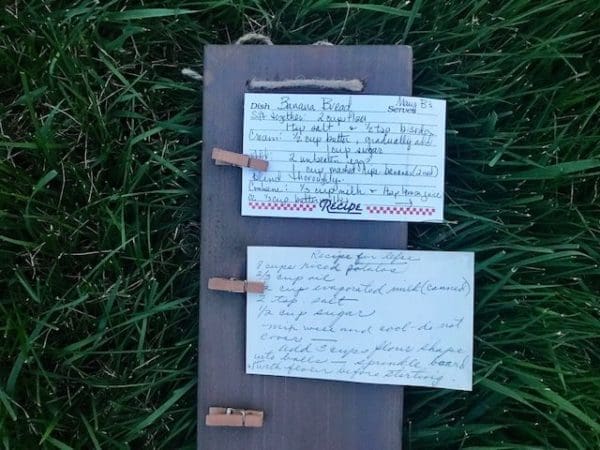 Dish Banana Bread Mary B's
Serves
Sift together: 2 cup flour
1 tsp salt & ½ tsp bi soda
Cream: ½ cup butter, gradually add
1 cup sugar
Add: 2 unbeaten eggs
1 cup mashed ripe bananas (2 med)
Blend thoroughly.
Combine: ⅓ cup milk & 1 tsp lemon juice
or cup buttermilk
Recipe
Recipe for lefse
8 cups riced potatoes
2/3 cup oil
cup evaporated milk (canned)
2 tsp. salt
½ cup sugar
-mix well and cool - do not
cover
add 3 cups flour shape
into balls — sprinkle board
with flour before starting.